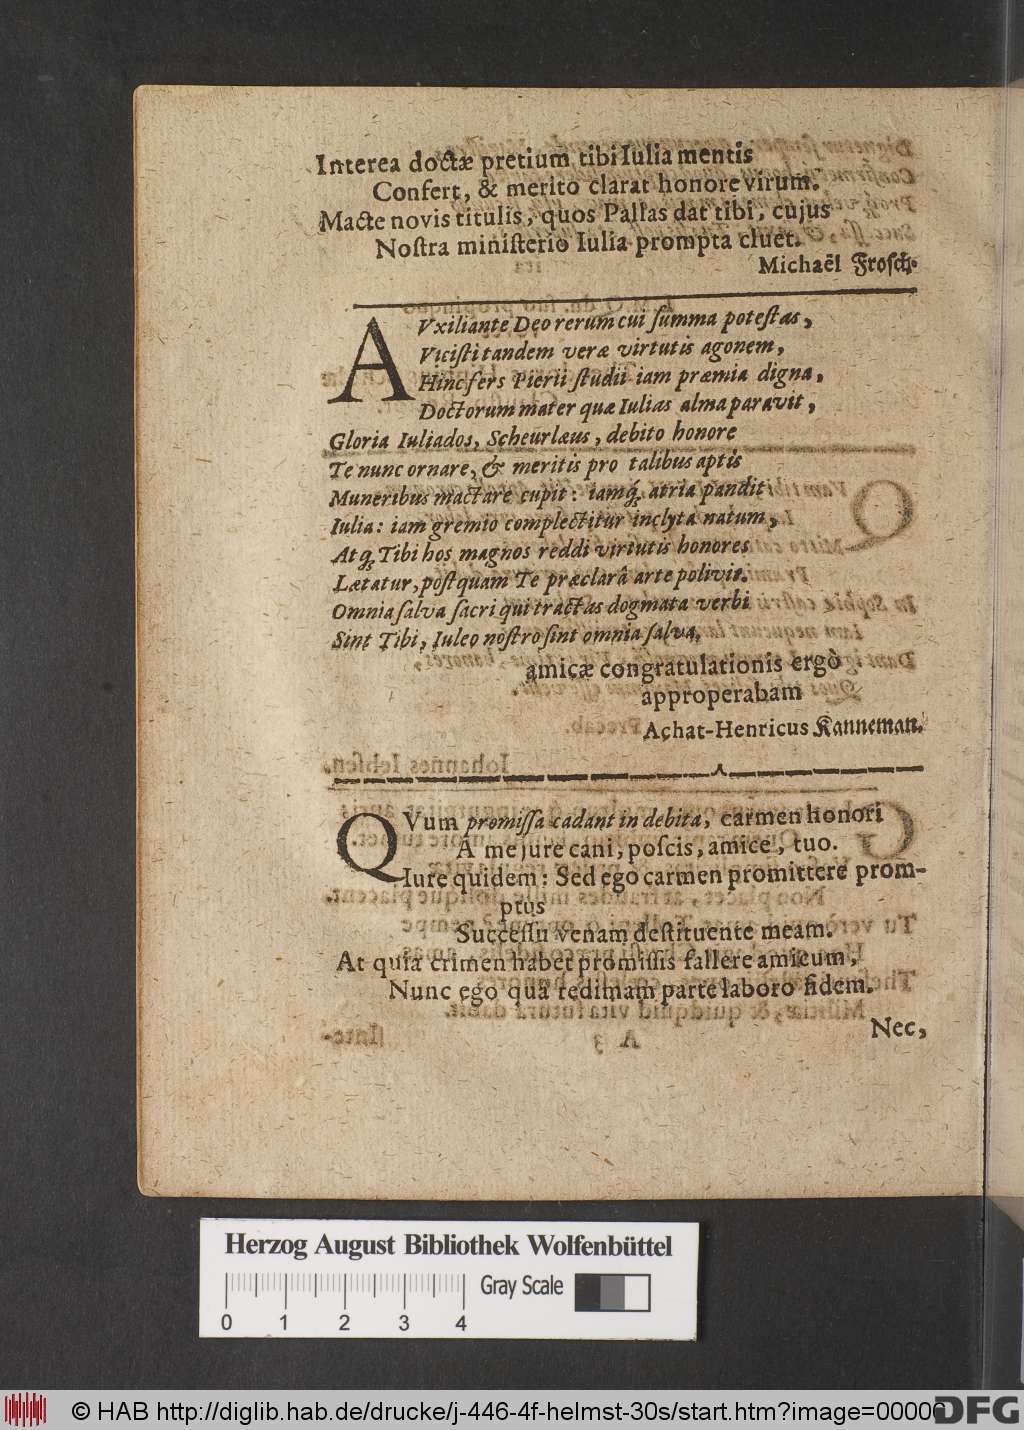 Interea doctæ pretium tibi Iulia mentis
Confert, & merito clarat honore virum.
Macte novis titulis, quos Pallas dat tibi, cujus
Nostra ministerio Iulia prompta cluet.
Michaël Frosch.
AVxiliante Deo rerum cui summa potestas,
Vicisti tandem veræ virtutis agonem,
Hinc fers Pierii studii iam præmia digna,
Doctorum mater quæ Iulias alma paravit,
Gloria Iuliados, Scheurlæus, debito honore
Te nunc ornare, & meritis pro talibus aptis
Muneribus mactare cupit: iamq́; atria pandit
Iulia: iam gremio complectitur inclyta natum,
Atq́; Tibi hos magnos reddi virtutis honores
Lætatur, postquam Te præclarâ arte polivit.
Omnia salva sacri qui tractas dogmata verbi
Sint Tibi, Iuleo nostro sint omnia salva,
amicæ congratulationis ergò
approperabam
Achat-Henricus Kanneman.
QVum promissa cadant in debita, carmen honori
A me jure cani, poscis, amice, tuo.
Iure quidem: Sed ego carmen promittere prom-
ptus
Successu venam destituente meam.
At quia crimen habet promissis fallere amicum,
Nunc ego quâ redimam parte laboro fidem.
Nec,
Herzog August Bibliothek Wolfenbüttel
Gray Scale
0 1 2 3 4
© HAB http://diglib.hab.de/drucke/j-446-4f-helmst-30s/start.htm?image=00006
DFG